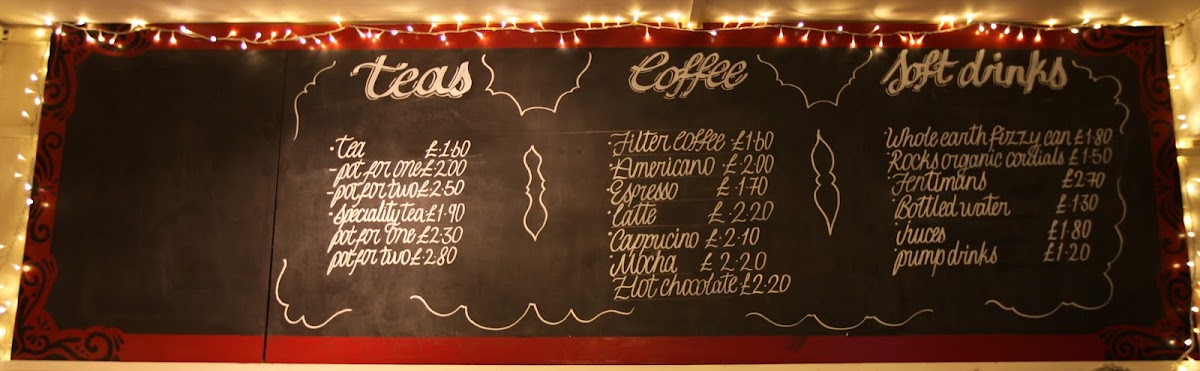 Teas
· Tea £1.60
- pot for one £2.00
- pot for two £2.50
· Speciality tea £1.90
pot for one £2.30
pot for two £2.80
Coffee
· Filter coffee £1.60
· Americano £2.00
· Espresso £1.70
· Latte £2.20
· Cappucino £2.10
· Mocha £2.20
Hot chocolate £2.20
Soft drinks
· Whole earth fizzy can £1.80
· Rocks organic cordials £1.50
· Fentimans £2.70
· Bottled water £1.30
· Juces £1.80
pump drinks £1.20